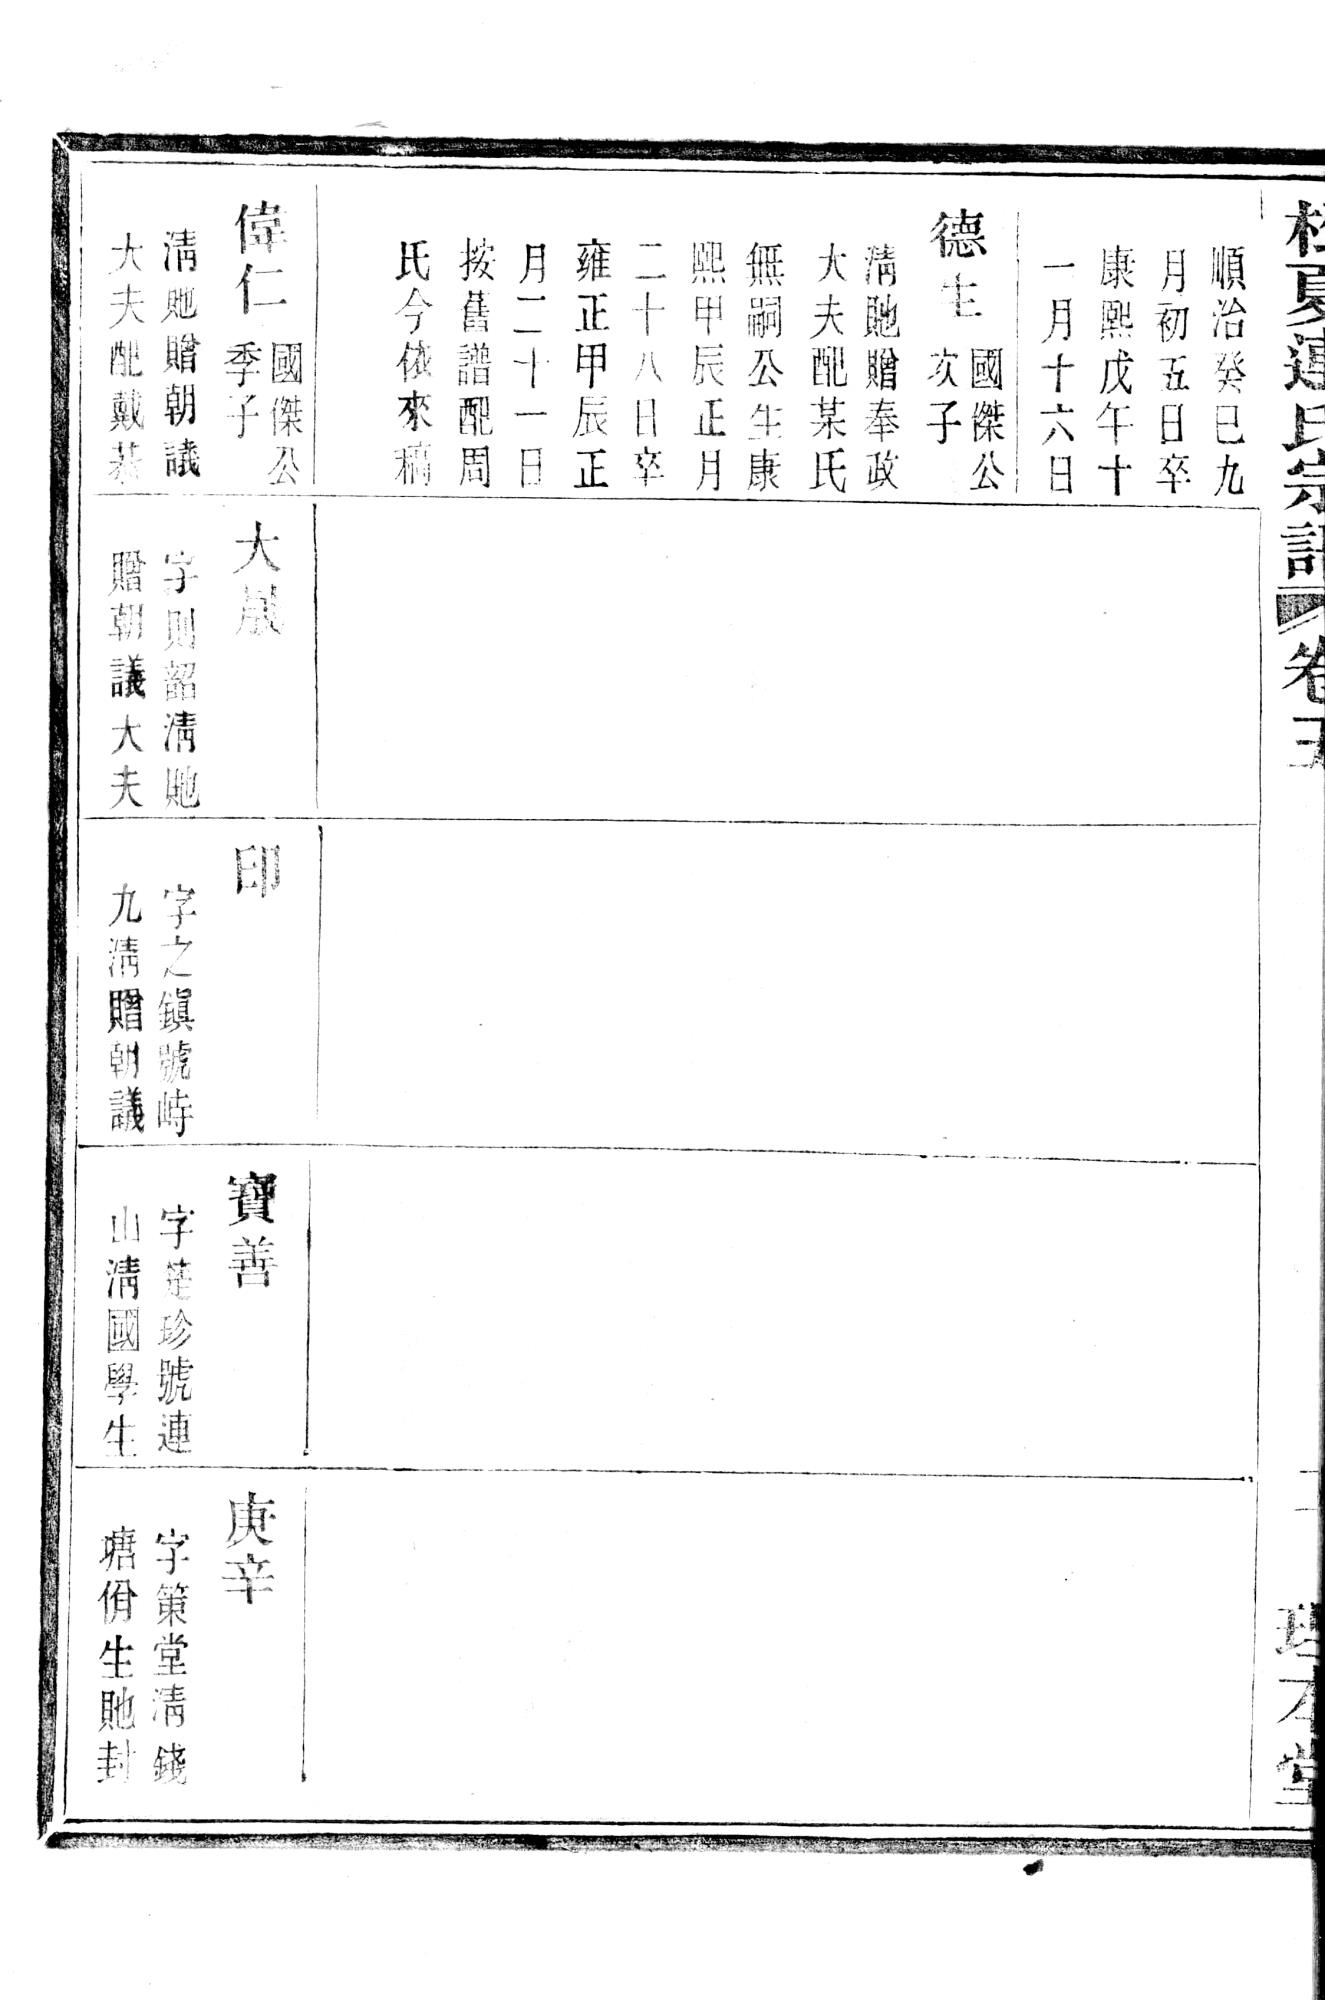 順治癸巳九
月初五日卒
康熙戊午十
一月十六日
德生 國傑公
次子
清貤贈奉政
大夫配某氏
無嗣公生康
熙甲辰正月
二十八日卒
雍正甲辰正
月二十一日
按舊譜配周
氏今依來稿
偉仁 國傑公
季子
清貤贈朝議
大夫配戴恭
大晟
字則韶清貤
贈朝議大夫
印
字之鎮號峙
九清贈朝議
寶善
字楚珍號連
山清國學生
庚辛
字策堂清錢
塘佾生貤封
夏連氏宗譜
卷五
理本堂